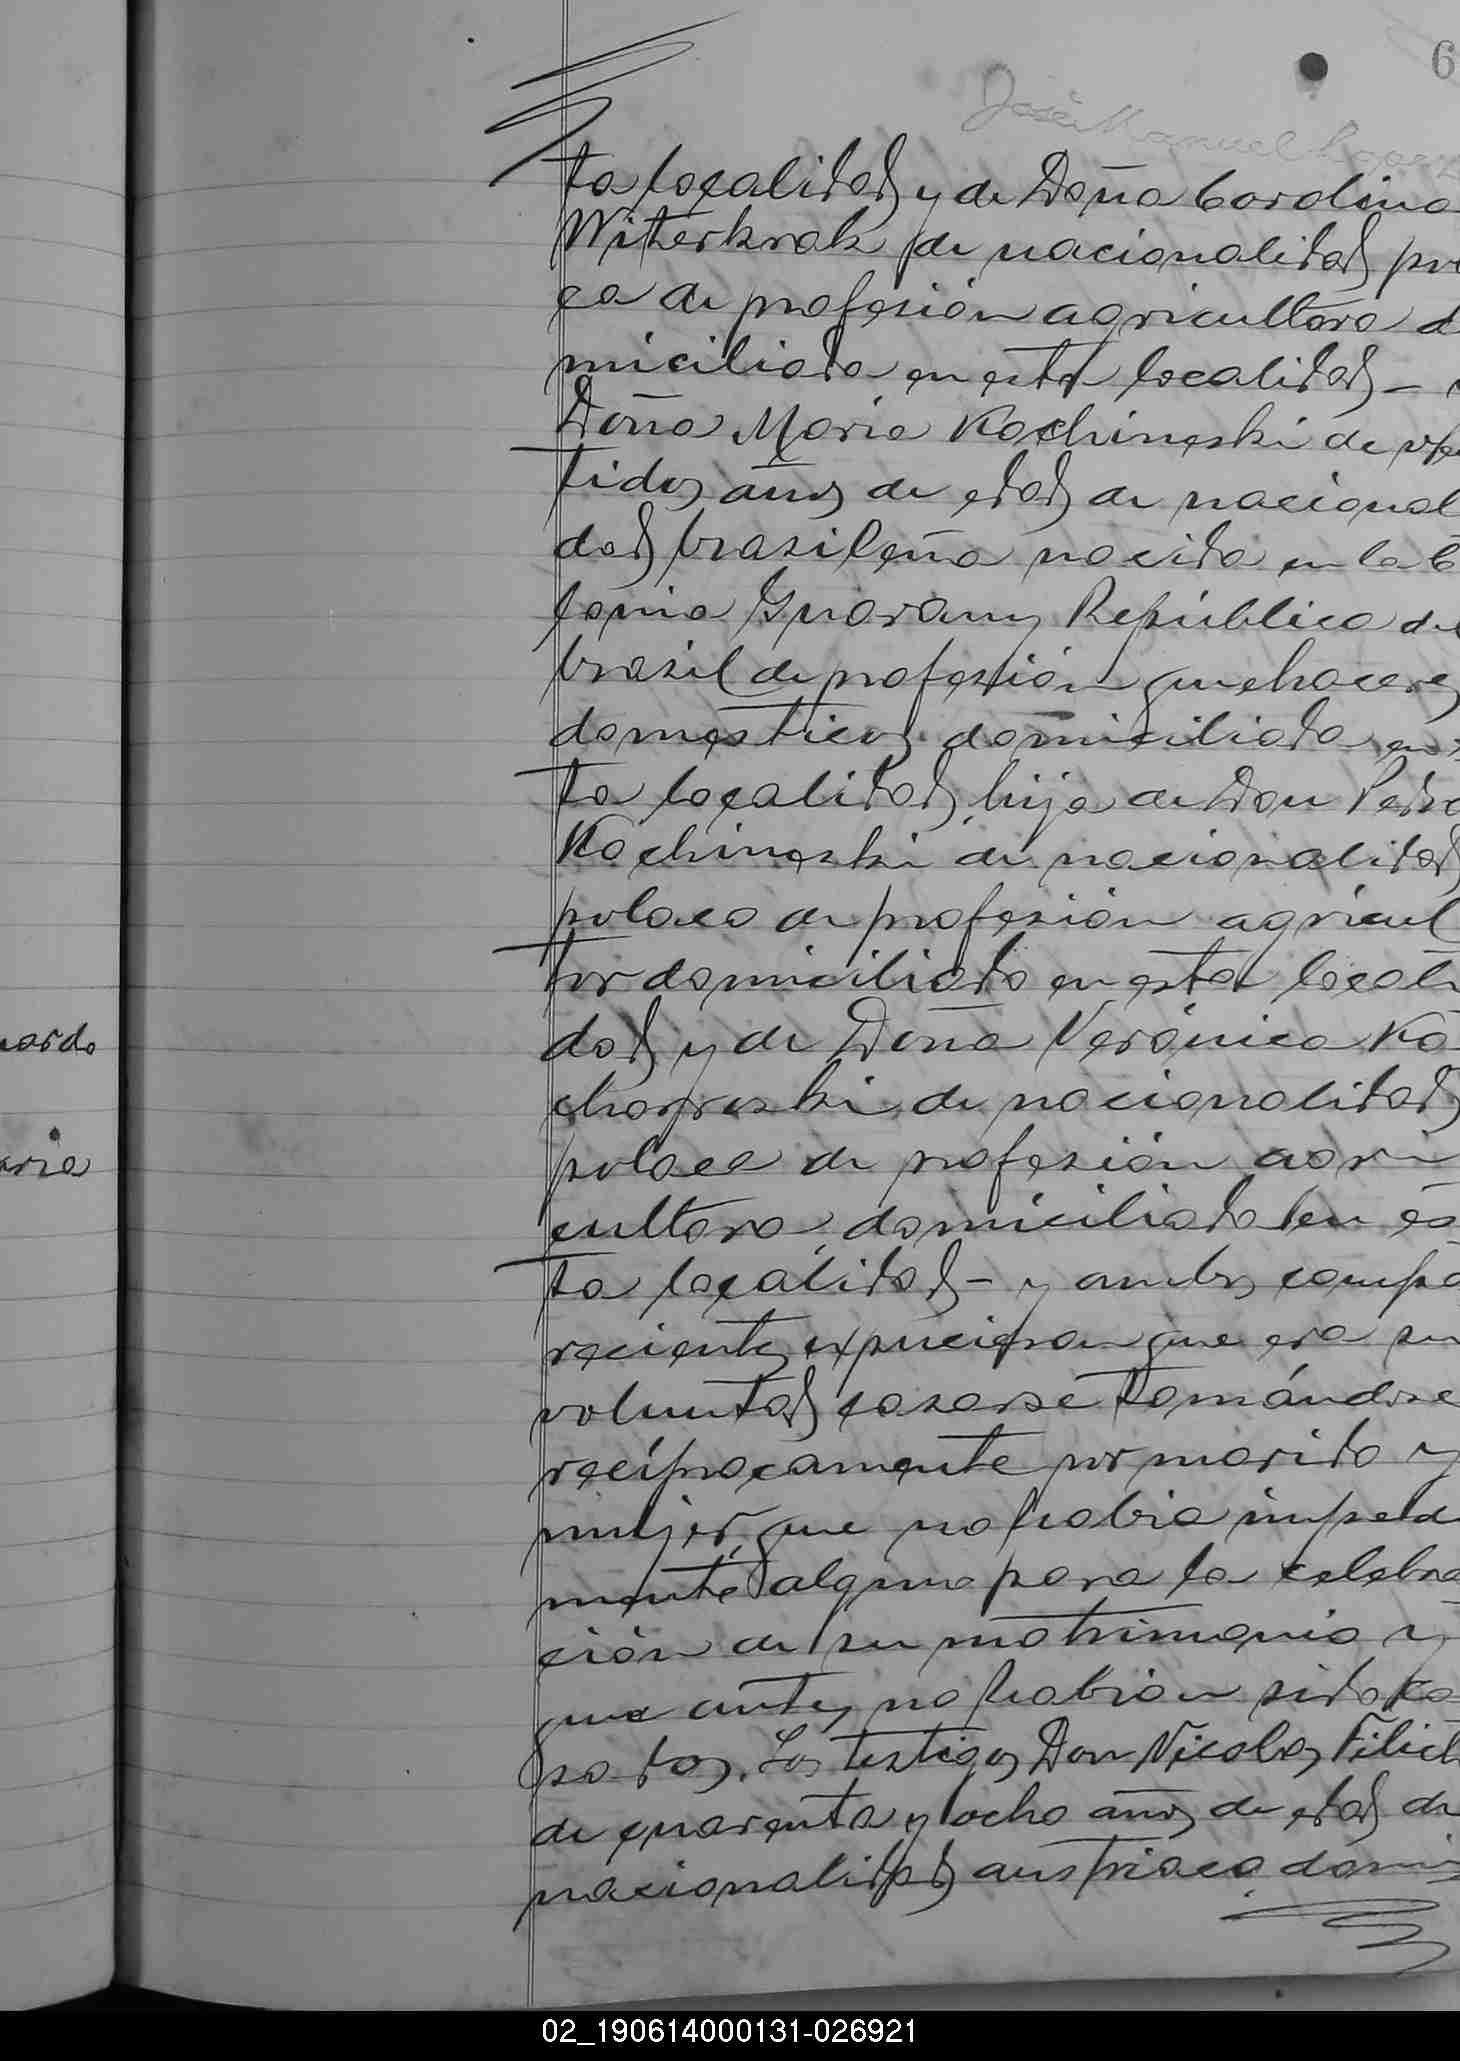 6
José Manuel Lopez
ta localidad y de Doña Carolina
Witerkrak de nacionalidad pru
ca de profesión agricultora d
miciliada en esta localidad – y
Doña Maria Kochineski de vein
tidos años de edad de nacional
dad brasileña nacida en la C
lonia Guarany República del
brasil de profesión quehaceres
domesticos domiciliada en es
ta localidad, hija de Don Pedro
Kochineski de nacionalidad
polaca de profesión agricul
tor domiciliado en esta locali
dad y de Doña Verónica Ko
de nacionalidad
polaca de profesión agri
cultora, domiciliada en es
ta localidad – y ambos compa
recientes expucieron que era su
voluntad casarse tomándose
recíprocamente por marido y
mujer, que no habia impedi
mento alguno para la celebra
ción de su matrimonio y
que antes no habian sido ca
sados. Los testigos Don Nicolas Filich
de cuarenta y ocho años de edad de
nacionalidad austriaca domi
uardo
aria
02_190614000131-026921